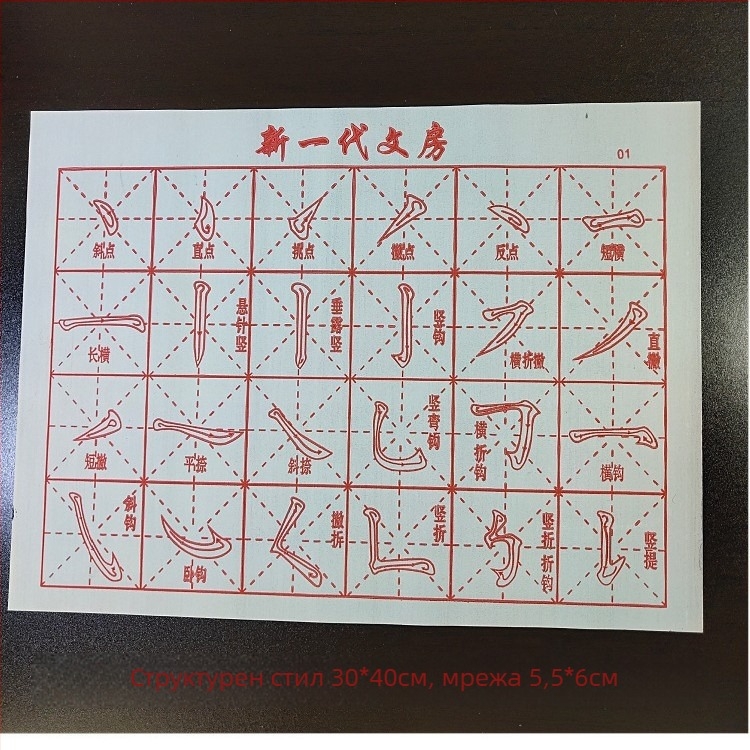 新一代文房
01
斜点
直点
挑点
撇点
反点
短横
长横
悬针竖
垂露竖
竖钩
横折撇
直撇
短撇
平捺
斜捺
竖弯钩
横折钩
横钩
斜钩
卧钩
撇折
竖折
竖折折钩
竖提
Структурен стил 30*40см, мрежа 5,5*6см